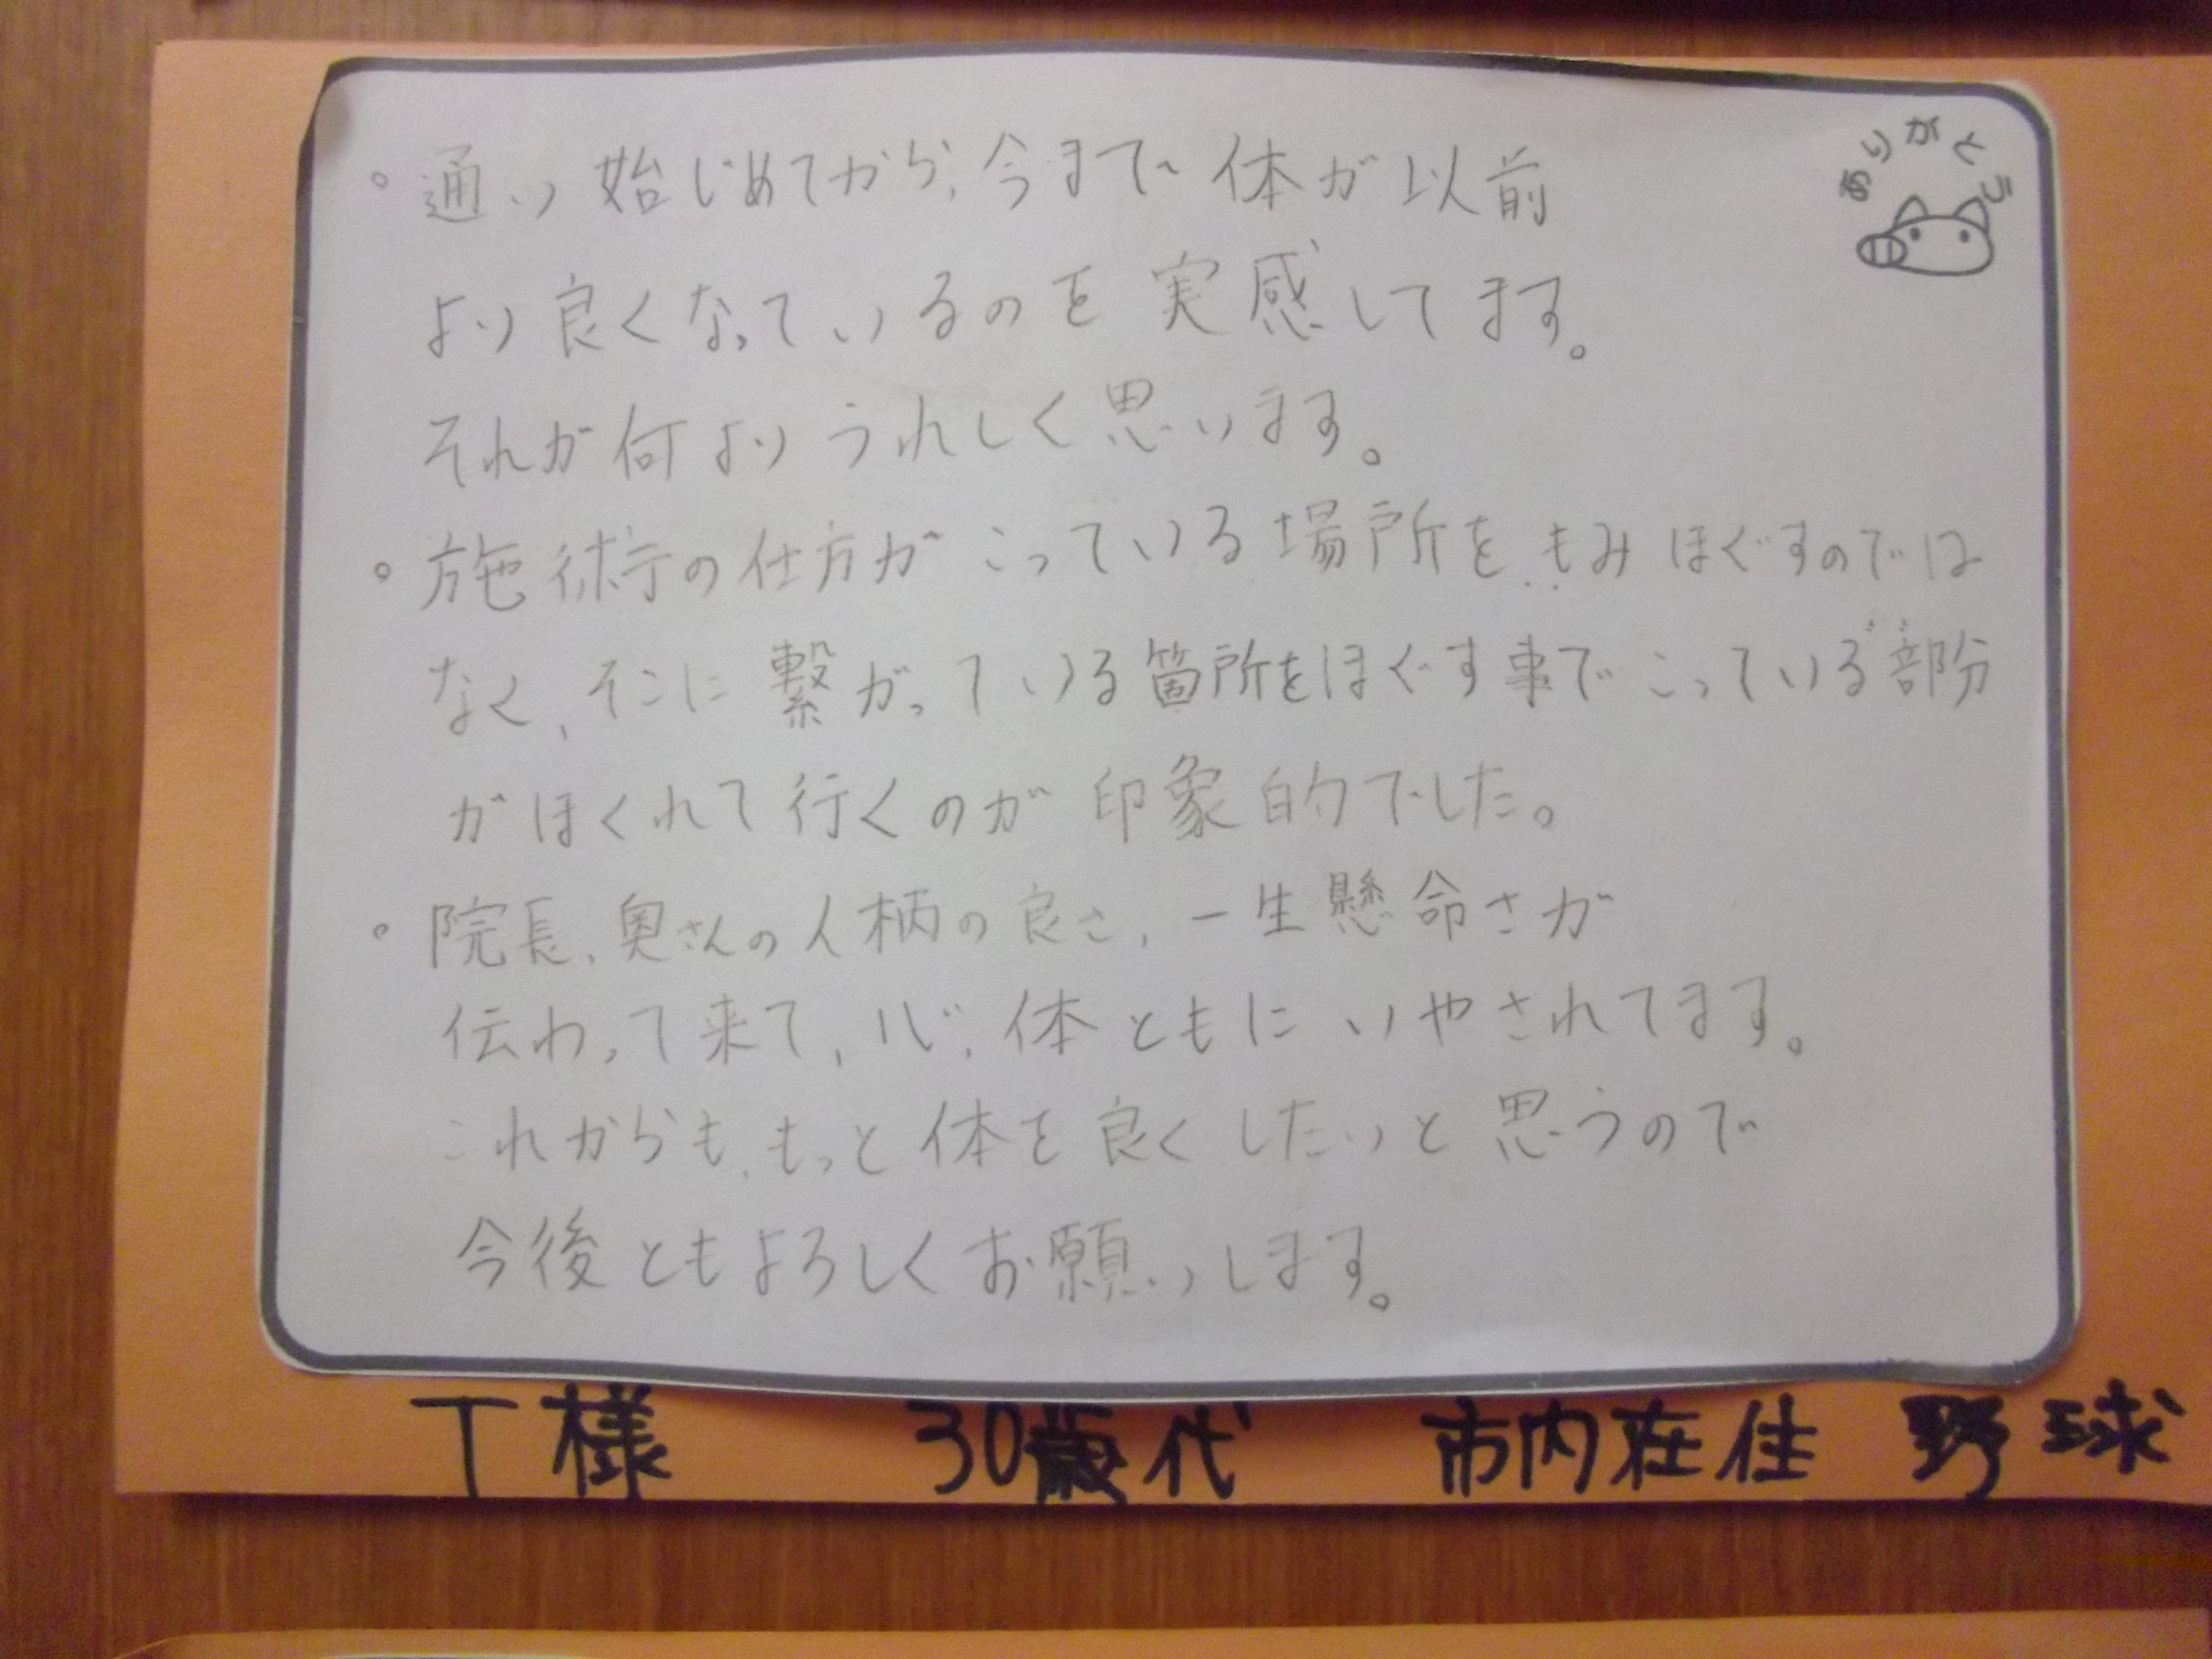 ありがとう
。通い始じめてから、今まで体が以前
より良くなっているのを実感してます。
それが何よりうれしく思います。
。施術の仕方がこっている場所を、もみほぐすのでは
なく、そこに繋がっている箇所をほぐす事でこっている部分
がほぐれて行くのが印象的でした。
。院長、奥さんの人柄の良さ、一生懸命さが
伝わって来て、心、体ともにいやされてます。
これからも、もっと体を良くしたいと思うので
今後ともよろしくお願いします。
T様 30歳代 市内在住 野球